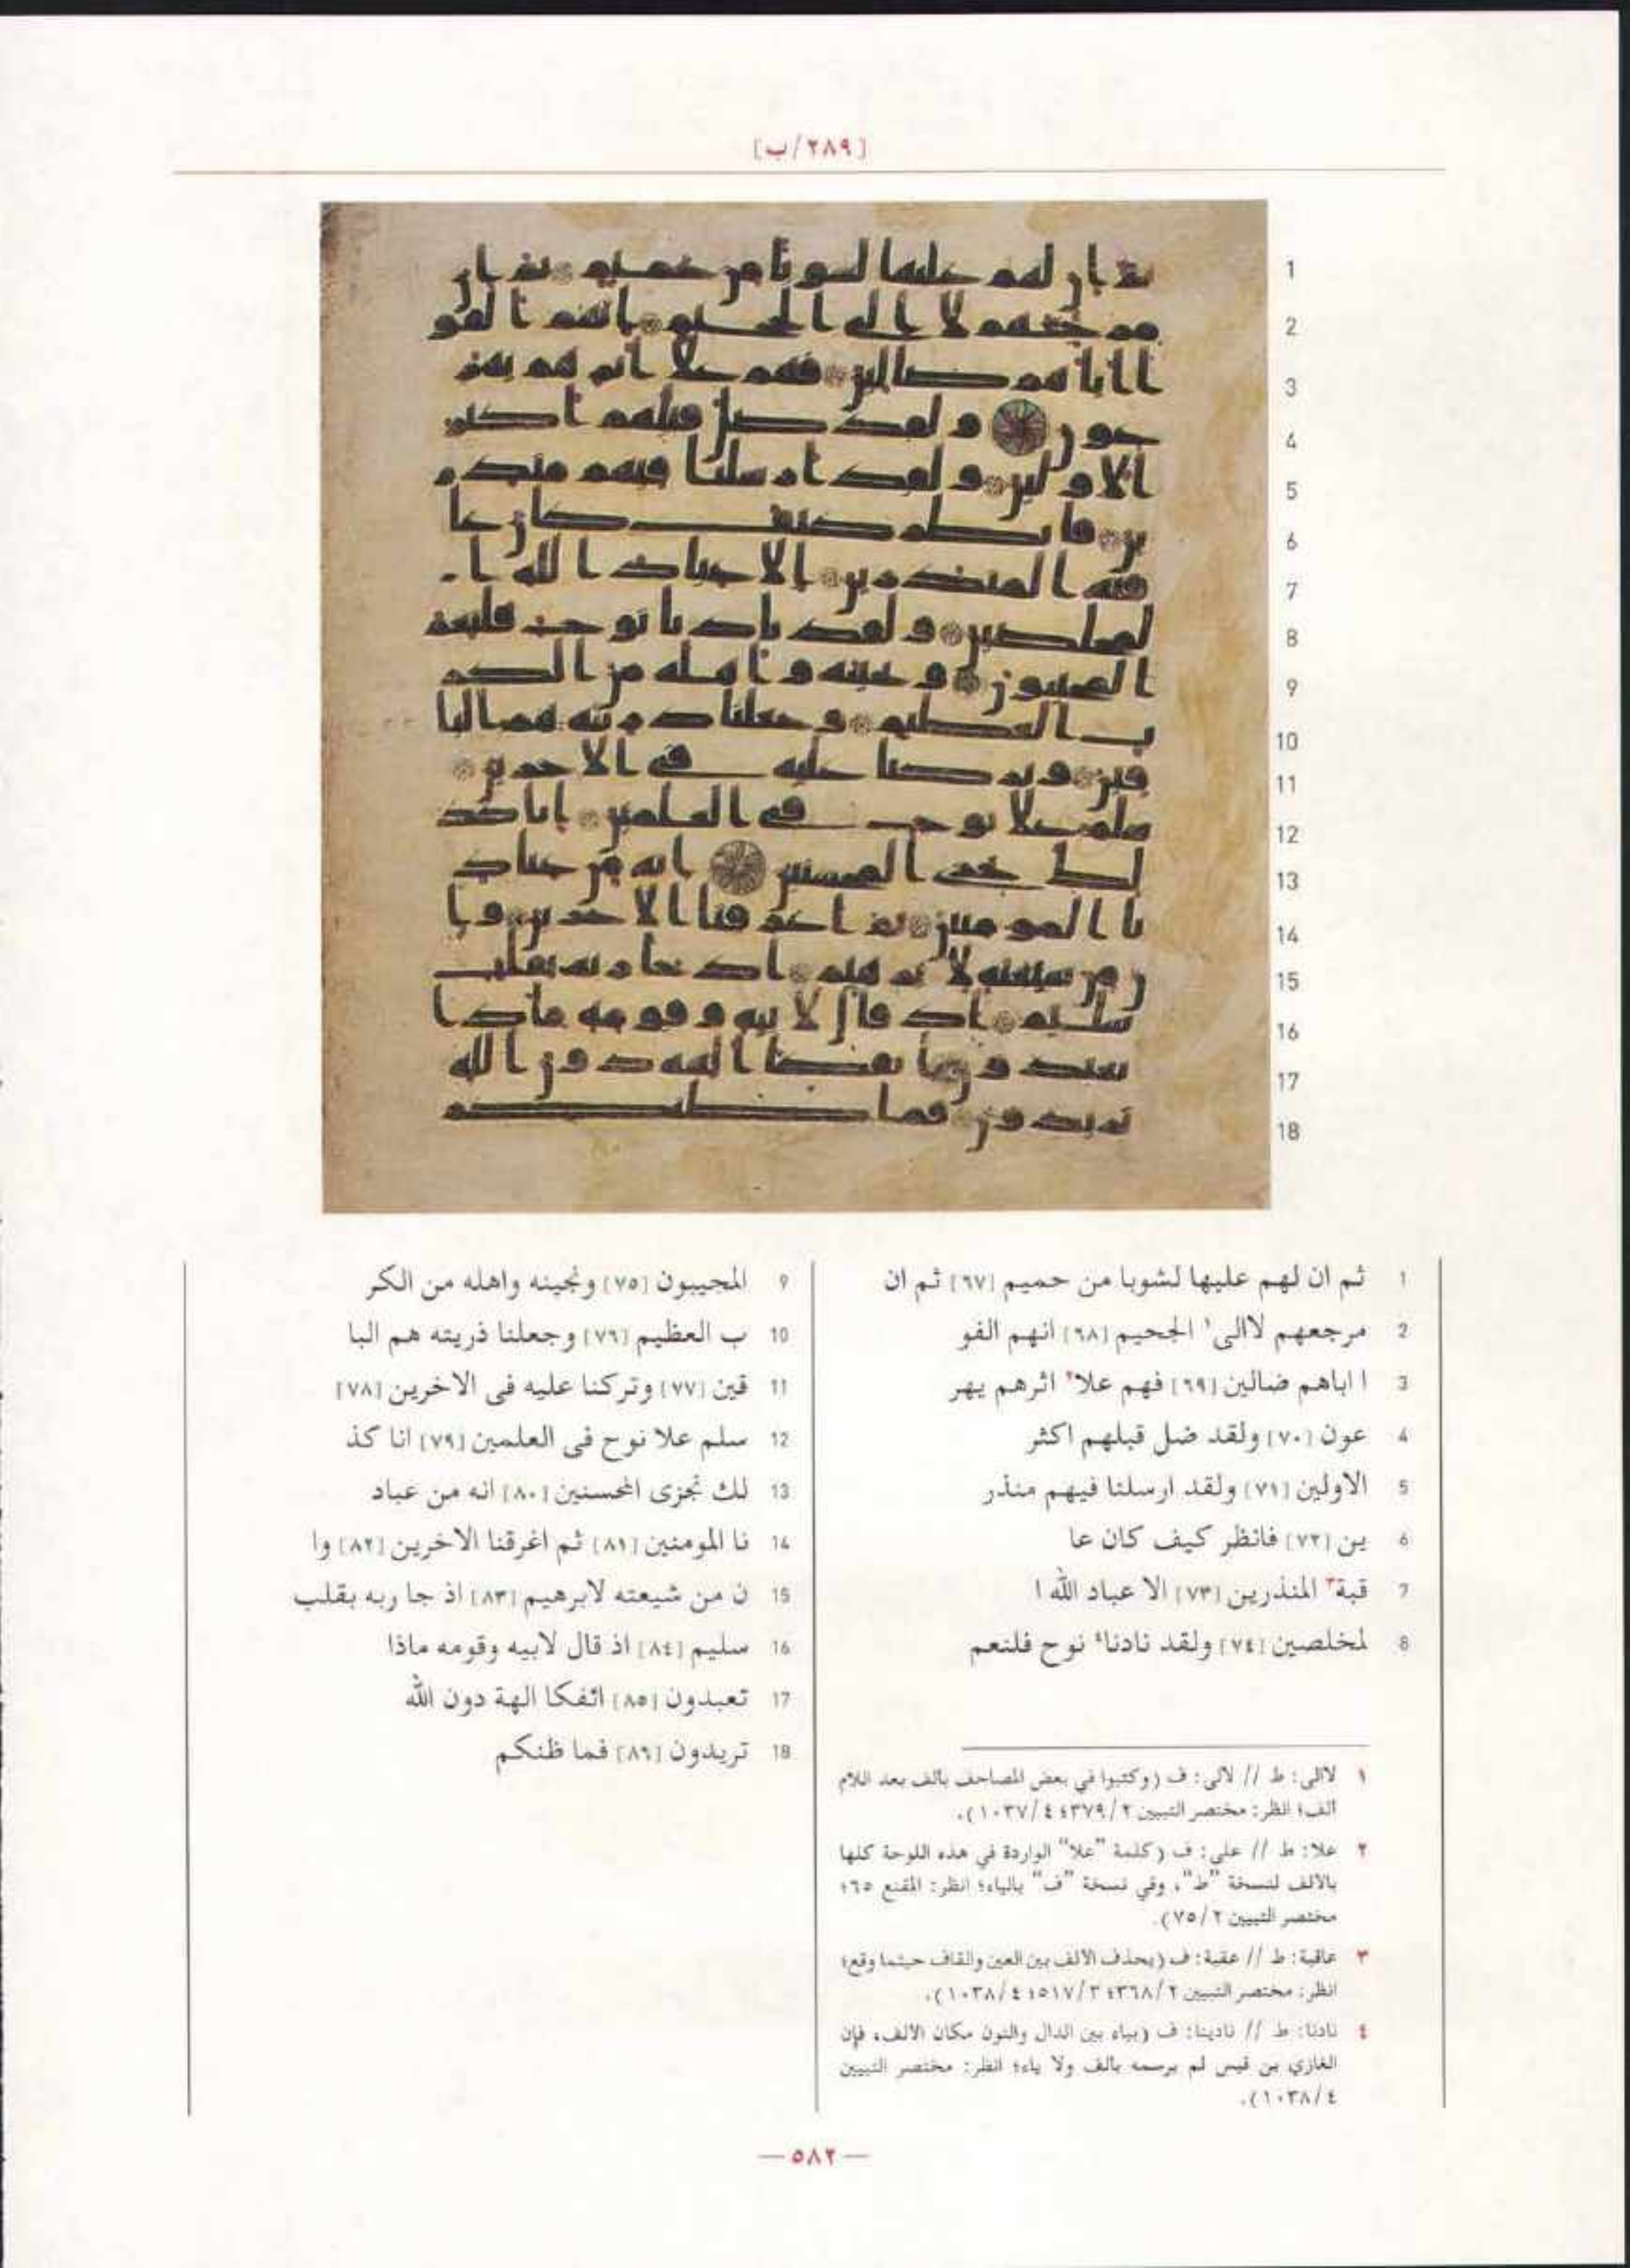 [٢٨٩/ب]
1 ثم ان لهم عليها لشوبا من حميم [٦٧] ثم ان
2 مرجعهم لاالى١ الجحيم [٦٨] انهم الفو
3 ا اباهم ضالين [٦٩] فهم علا٢ اثرهم يهر
4 عون [٧٠] ولقد ضل قبلهم اكثر
5 الاولين [٧١] ولقد ارسلنا فيهم منذر
6 ين [٧٢] فانظر كيف كان عا
7 قبة٣ المنذرين [٧٣] الا عباد الله ا
8 لمخلصين [٧٤] ولقد نادنا٤ نوح فلنعم
9 المجيبون [٧٥] ونجينه واهله من الكر
10 ب العظيم [٧٦] وجعلنا ذريته هم البا
11 قين [٧٧] وتركنا عليه فى الاخرين [٧٨]
12 سلم علا نوح فى العلمين [٧٩] انا كذ
13 لك نجزى المحسنين [٨٠] انه من عباد
14 نا المومنين [٨١] ثم اغرقنا الاخرين [٨٢] وا
15 ن من شيعته لابرهيم [٨٣] اذ جا ربه بقلب
16 سليم [٨٤] اذ قال لابيه وقومه ماذا
17 تعبدون [٨٥] ائفكا الهة دون الله
18 تريدون [٨٦] فما ظنكم
١ لاالى: ط // لالى: ف (وكتبوا في بعض المصاحف بالف بعد اللام
الف؛ انظر: مختصر التبيين ٣٧٩/٢؛ ١٠٣٧/٤).
٢ علا: ط // على: ف (كلمة "علا" الواردة في هذه اللوحة كلها
بالالف لنسخة "ط"، وفي نسخة "ف" بالياء؛ انظر: المقنع ٦٥؛
مختصر التبيين ٧٥/٢).
٣ عاقبة: ط // عقبة: ف (بحذف الالف بين العين والقاف حيثما وقع؛
انظر: مختصر التبيين ٣٦٨/٢؛ ٥١٧/٣؛ ١٠٣٨/٤).
٤ نادنا: ط // نادينا: ف (بياء بين الدال والنون مكان الالف، فإن
الغازي بن قيس لم يرسمه بالف ولا ياء؛ انظر: مختصر التبيين
١٠٣٨/٤).
— ٥٨٢ —